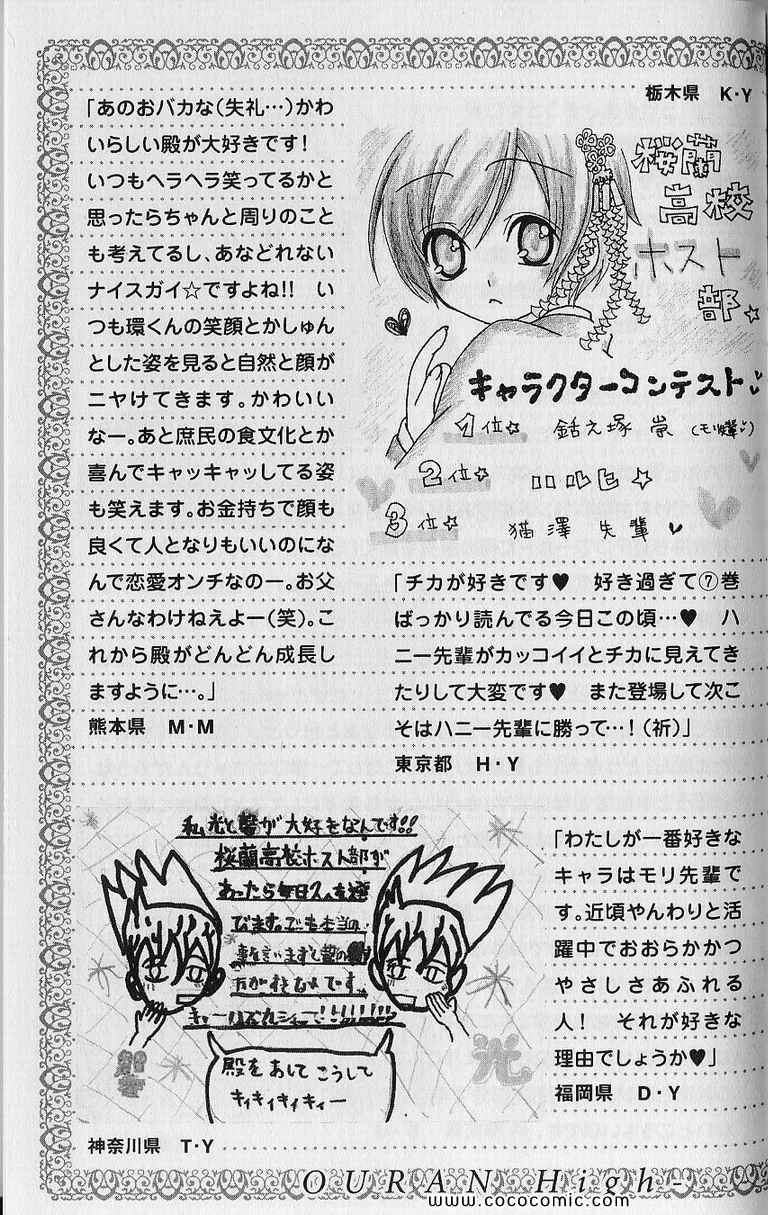 「あのおバカな(失礼…)かわ
いらしい殿が大好きです!
いつもヘラヘラ笑ってるかと
思ったらちゃんと周りのこと
も考えてるし、あなどれない
ナイスガイ☆ですよね!! い
つも環くんの笑顔とかしゅん
とした姿を見ると自然と顔が
ニヤけてきます。かわいい
なー。あと庶民の食文化とか
喜んでキャッキャッしてる姿
も笑えます。お金持ちで顔も
良くて人となりもいいのにな
んで恋愛オンチなのー。お父
さんなわけねえよー(笑)。こ
れから殿がどんどん成長し
ますように…。」
熊本県 M・M
栃木県 K・Y
桜蘭
高校
ホスト
部☆
キャラクターコンテスト
1位☆ 銛之塚 崇
2位☆ ハルヒ☆
3位☆ 猫澤先輩
「チカが好きです♥ 好き過ぎて⑦巻
ばっかり読んでる今日この頃…♥ ハ
ニー先輩がカッコイイとチカに見えてき
たりして大変です♥ また登場して次こ
そはハニー先輩に勝って…!(祈)」
東京都 H・Y
私、光と馨が大好きなんです!!
桜蘭高校ホスト部が
あったら毎日2人を選
びます。でも本当の
事を言いますと馨の
方がすきなんです。
殿をあしてこうして
キィキィキィキィー
馨
光
神奈川県 T・Y
「わたしが一番好きな
キャラはモリ先輩で
す。近頃やんわりと活
躍中でおおらかかつ
やさしさあふれる
人! それが好きな
理由でしょうか♥」
福岡県 D・Y
OURAN High-
www.cococomic.com